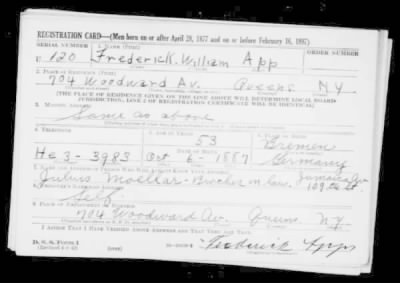 REGISTRATION CARD—(Men born on or after April 28, 1877 and on or before February 16, 1897)
SERIAL NUMBER 1. NAME (Print) ORDER NUMBER
U 120 Frederick William App
2. PLACE OF RESIDENCE (Print)
704 Woodward Av. Queens N.Y.
[THE PLACE OF RESIDENCE GIVEN ON THE LINE ABOVE WILL DETERMINE LOCAL BOARD
JURISDICTION; LINE 2 OF REGISTRATION CERTIFICATE WILL BE IDENTICAL]
3. MAILING ADDRESS
Same as above
4. TELEPHONE 5. AGE IN YEARS 6. PLACE OF BIRTH
53 Bremen
DATE OF BIRTH
He 3-3983 Oct. 6-1887 Germany
7. NAME AND ADDRESS OF PERSON WHO WILL ALWAYS KNOW YOUR ADDRESS
Julius Moellar- Brother in Law. Jamaica 109th St.
8. EMPLOYER'S NAME AND ADDRESS
Self
9. PLACE OF EMPLOYMENT OR BUSINESS
704 Woodward Av. Queens. N.Y.
I AFFIRM THAT I HAVE VERIFIED ABOVE ANSWERS AND THAT THEY ARE TRUE.
D. S. S. Form 1
(over) Frederick App